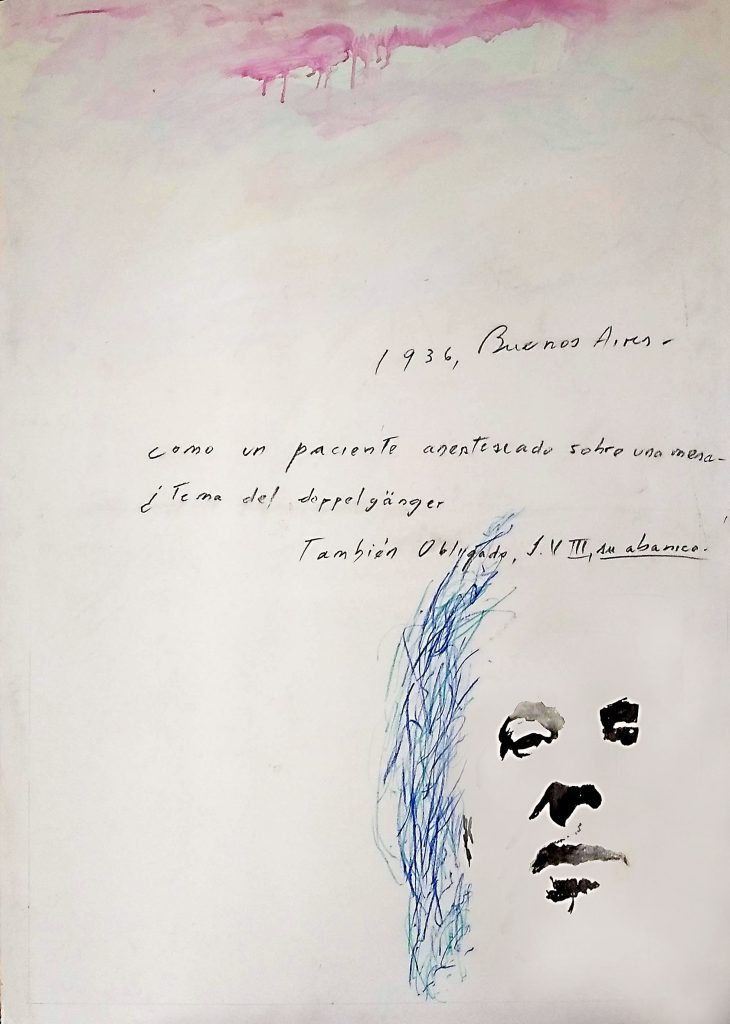 1936, Buenos Aires-
como un paciente anestesiado sobre una mesa-
¿Tema del doppelgänger
También Obligado, S. VIII, su abanico.